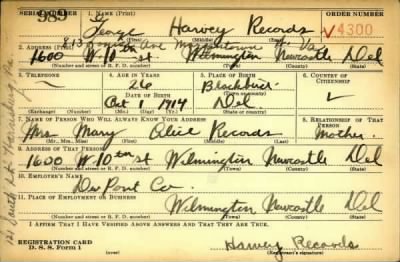 SERIAL NUMBER
1. NAME (Print)
ORDER NUMBER
989
George Harvey Records
V4300
(First) (Middle) (Last)
Ave Morgantown W. Va.
2. ADDRESS (Print)
1600 W 10th st Wilmington Newcastle Del
(Number and street or R. F. D. number) (Town) (County) (State)
3. TELEPHONE
4. AGE IN YEARS
5. PLACE OF BIRTH
6. COUNTRY OF CITIZENSHIP
26
DATE OF BIRTH
Oct 1 1914
Del
(Exchange) (Number) (Mo.) (Day) (Yr.) (State or country)
7. NAME OF PERSON WHO WILL ALWAYS KNOW YOUR ADDRESS
8. RELATIONSHIP OF THAT PERSON
Mrs Mary Alice Records Mother
(Mr., Mrs., Miss) (First) (Middle) (Last)
9. ADDRESS OF THAT PERSON
1600 W 10th st Wilmington Newcastle Del
(Number and street or R. F. D. number) (Town) (County) (State)
10. EMPLOYER'S NAME
Du Pont Co.
11. PLACE OF EMPLOYMENT OR BUSINESS
Wilmington Newcastle Del
(Number and street or R. F. D. number) (Town) (County) (State)
I AFFIRM THAT I HAVE VERIFIED ABOVE ANSWERS AND THAT THEY ARE TRUE.
REGISTRATION CARD
D. S. S. Form 1
Harvey Records
(Registrant's signature)